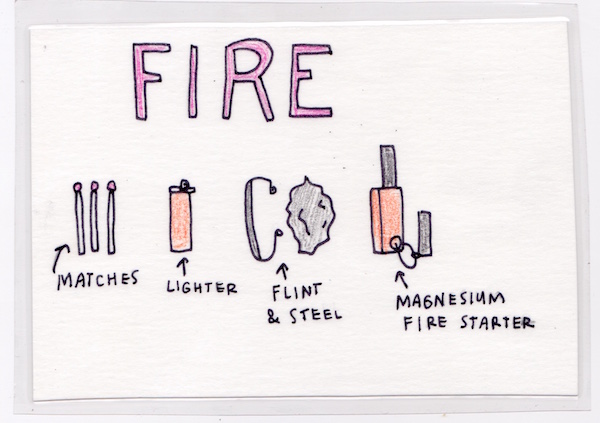 FIRE
MATCHES
LIGHTER
FLINT
& STEEL
MAGNESIUM
FIRE STARTER